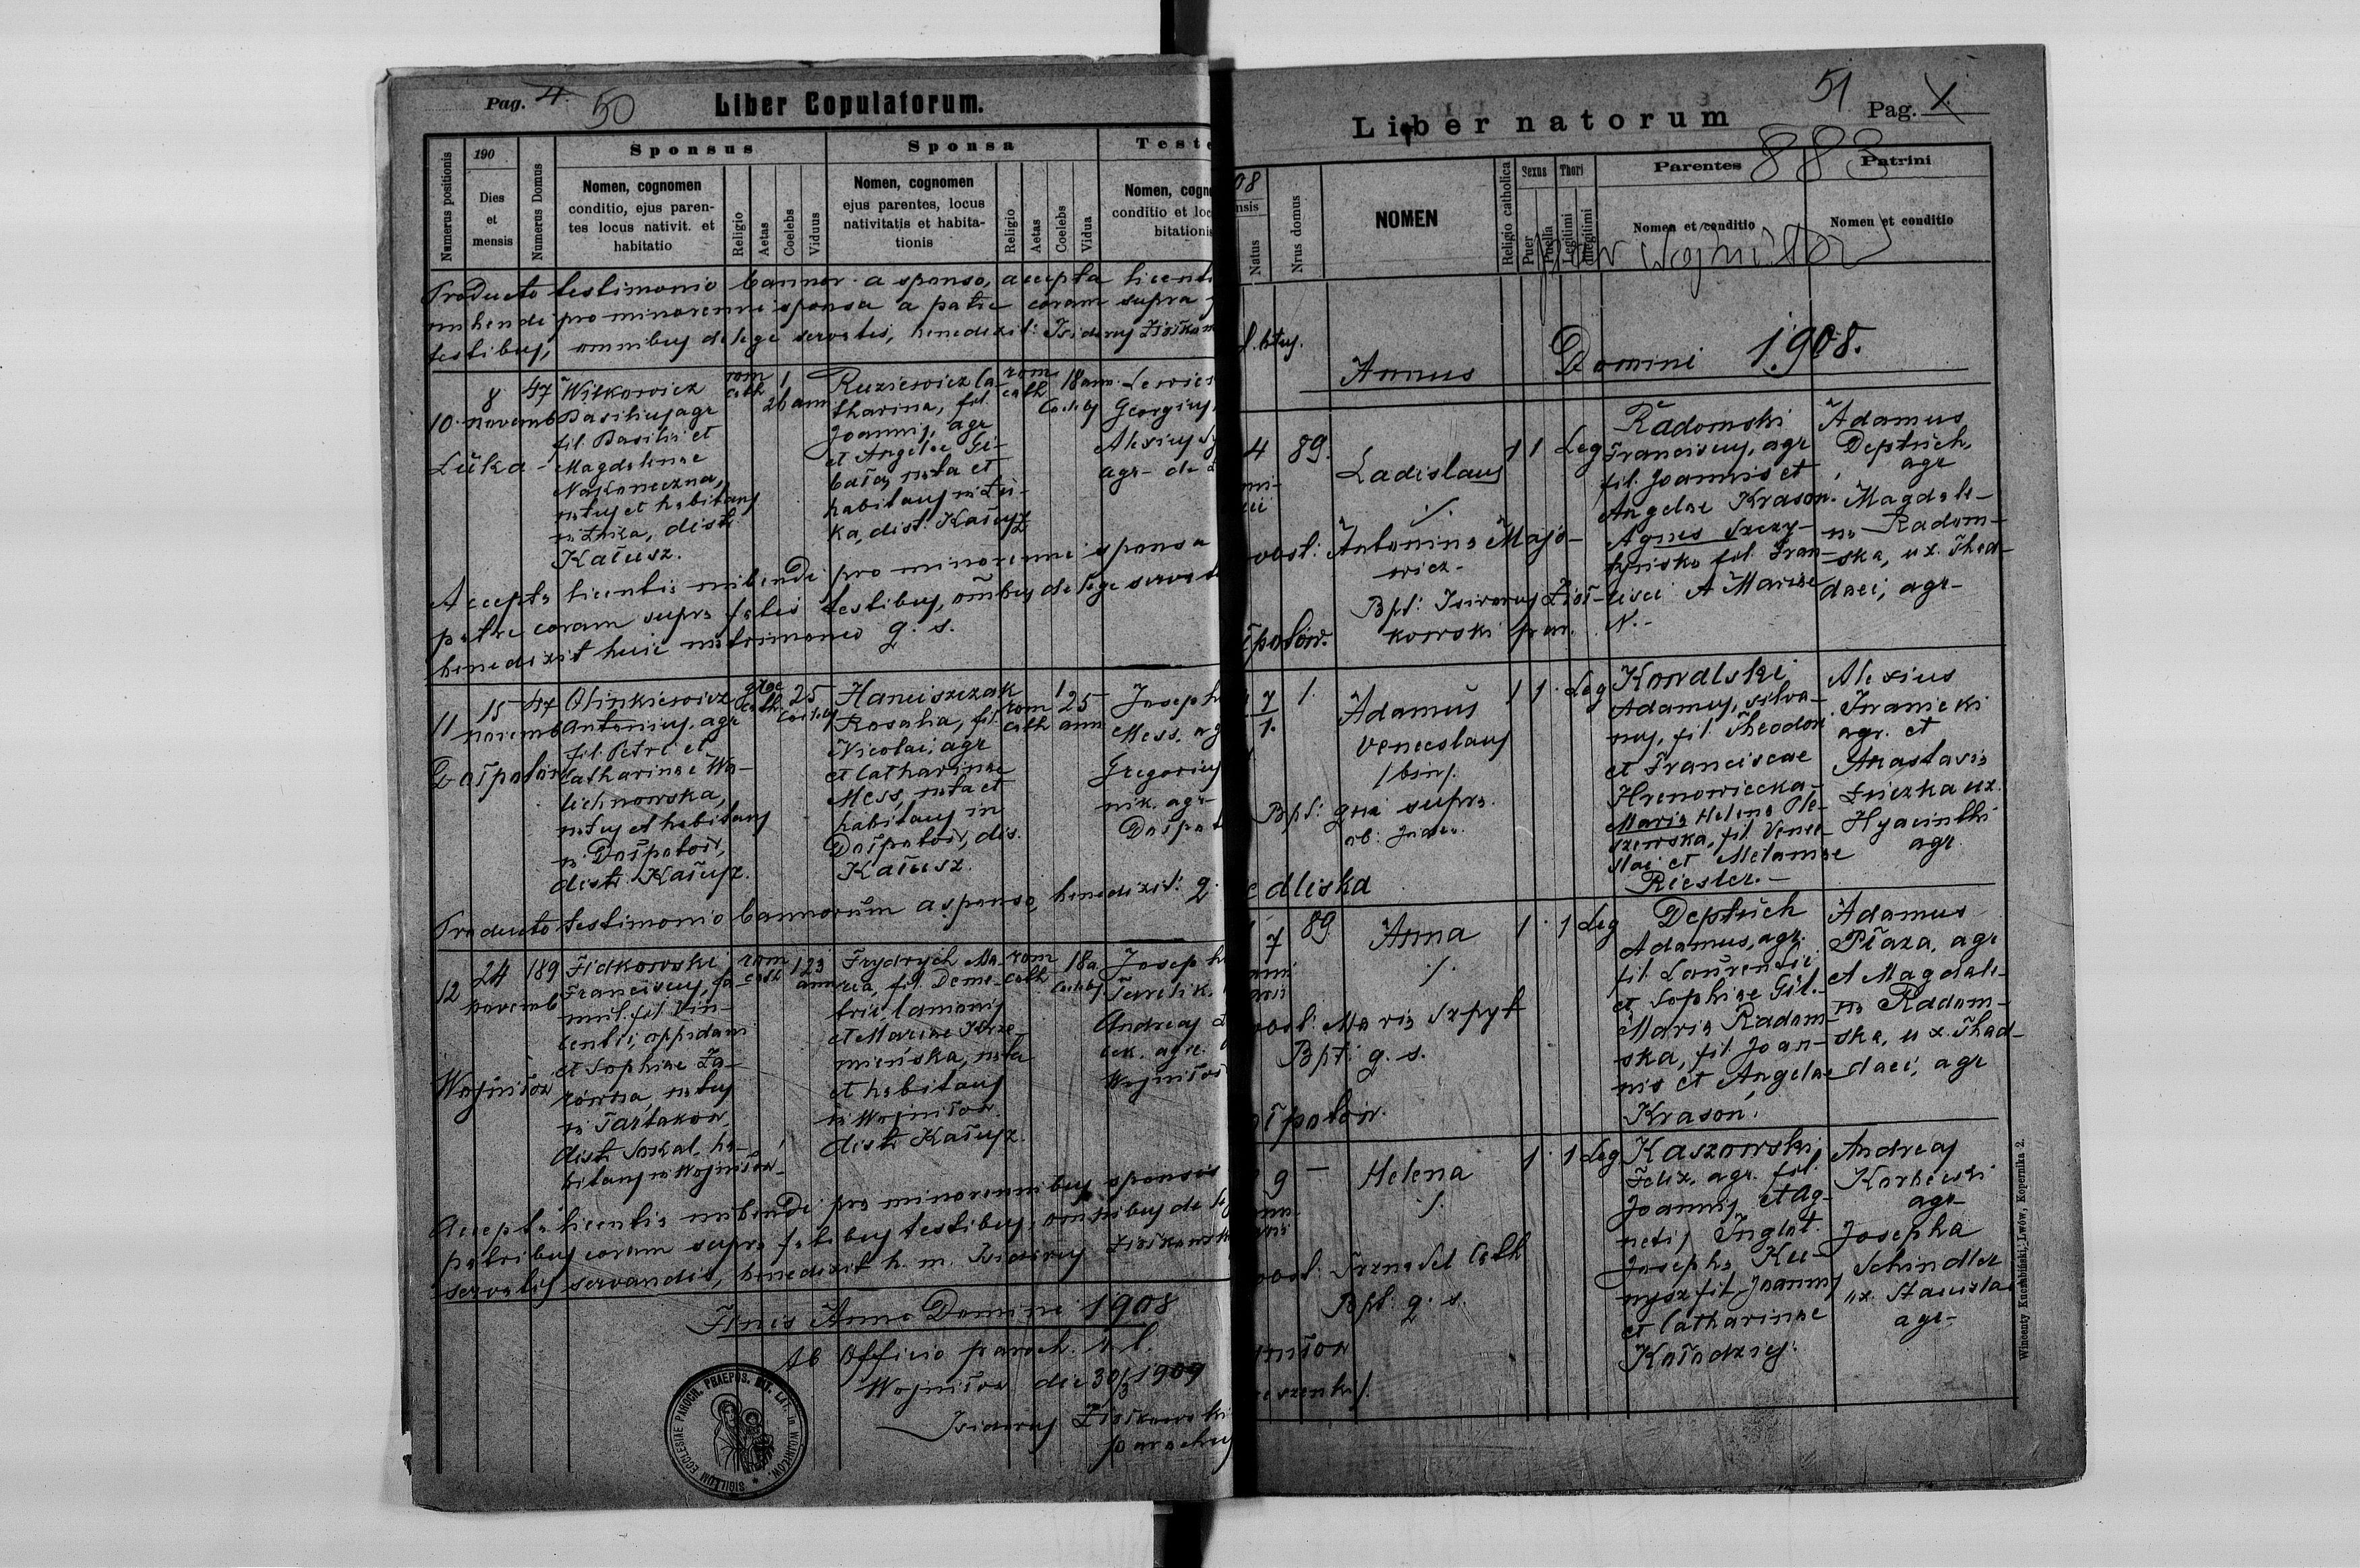 Pag. 4. 50
Liber Copulatorum.
Numerus positionis
190
Dies
et
mensis
Numerus Domus
Sponsus
Nomen, cognomen
conditio, ejus paren-
tes locus nativit. et
habitatio
Religio
Aetas
Coelebs
Viduus
Sponsa
Nomen, cognomen
ejus parentes, locus
nativitatis et habita-
tionis
Religio
Aetas
Coelebs
Vidua
Teste
Nomen, cogn
conditio et loc
bitationi
Producto testimonio bannor. a sponso, accepta licenti
nubendi pro minorenni sponsa a patre coram supra
testibus, omnibus de lege servatis, benedixit: Isidorus
10
8
novemb
Łuka
47
Witkowicz
Basilius agr
fil. Basilii et
Magdalenae
Nakoneczna,
natus et habitans
in Łuka, distr
Kałusz.
rom
cath
1
26 ann
Ruzicewicz Ca-
tharina, fil.
Joannis, agr
et Angelae Gi-
bała, nata et
habitans in Łu-
ka, dist. Kałusz
rom
cath
18 ann.
Coelebs
Georgius
Alexius
agr. de
Accepta licentia nubendi pro minorenni sponsa
patre coram supra fatis testibus, omibus de lege servat
benedixit huic matrimonio q. s.
11
15
novemb
Dołpotów
47
Olinkiewicz
Antonius, agr
fil. Petri et
Catharinae Wa-
lichnowska,
natus et habitans
in Dołpotów,
distr. Kałusz.
grae
cath
25
Coelebs
Hanciszczak
Rosalia, fil.
Nicolai, agr
et Catharinae
Mess, nata et
habitans in
Dołpotów, dis.
Kałusz.
rom
cath
1
25
ann
Joseph
Mess, ag
Gregorius
nik. agr
Dołpot
Producto testimonio bannorum a sponso, benedixit: q.
12
24
novemb
Wojniłów
189
Fidkowski
Franciscus, fa-
mul. fil. Vin-
centii, oppidani
et Sophiae Za-
równa, natus
in Tartaków
distr Sokal, ha-
bitans in Wojniłów
rom
cath
1 23
ann
Frydrych Ma
ria, fil. Deme-
trii, lanionis
et Mariae Krze
mieńska, nata
et habitans
in Wojniłów
distr Kałusz.
rom
cath
18 a
Coelebs
Joseph
Andreas
cek. agr.
Wojniłów
Accepta licentia nubendi pro minorennibus sponsis
patribus coram supra fatibus testibus, omnibus de le
servatis servandis, benedixit h. m. Isidorus Ziołkowsk
Finis Anni Domini 1908
Ab Officio paroch. r. l.
Wojniłów die 30/3 1909
Isidorus Ziołkowski
parochus
SIGILLUM ECCLESIAE PAROCH. PRAEPOS. RIT. LAT. in WOJNIŁÓW.
51 Pag. 1
Liber natorum
883
08
nsis
Natus
Nrus domus
NOMEN
Religio catholica
Sexus
Puer
Puella
Thori
Legitimi
Illegitimi
Parentes
Nomen et conditio
Patrini
Nomen et conditio
Wojniłów
Annus Domini 1908.
4
89.
Ladislaus
./.
obst: Antonina Majo-
wicz-
Bpt: Isidorus Zioł-
kowski par.
łpotów.
1 1 Leg
Radomski
Franciscus, agr
fil. Joannis et
Angelae Krason.
Agnes Szczy-
fil. Fran-
cisci et Mariae
N.-
Adamus
Deptuch,
agr
Magdale-
na Radom-
ska, ux. Thad-
daei, agr-
7
1.
1.
Adamus
Venceslaus
/bin/.
Bpt: qui supra.
1 1. Leg
Kowalski
Adamus, silva-
nus, fil. Theodori
et Franciscae
Hrenowiecka-
Maria Helena Ple-
szewska, fil. Vence-
slai et Melaniae
Riesler.-
Alexius
Iwanicki
agr. et
Anastasia
Łuczka ux.
Hyacinthi
agr.
edliska
7
89.
Anna
./.
obst: Maria Szpyt
Bpt: q. s.
łpotów.
1. 1 Leg
Deptuch
Adamus, agr.
fil. Laurentii
et Sophiae Gil.-
Maria Radom-
ska, fil. Joan-
nis et Angelae
Krason.
Adamus
Płaza, agr
et Magdale-
na Radom-
ska, ux. Thad-
daei, agr
9
—
Helena
./.
Bpt: q. s.
niłów
1. 1 Leg
Kaszowski
Felix, agr. fil.
Joannis et Ag-
netis Inglot.
Josepha Ku-
nysz fil. Joannis
et Catharinae
Kołodziej.
Andreas
Korbecki
agr-
Josepha
Schindler
ux. Stanislai
agr-
Wincenty Kuczabiński, Lwów, Kopernika 2.